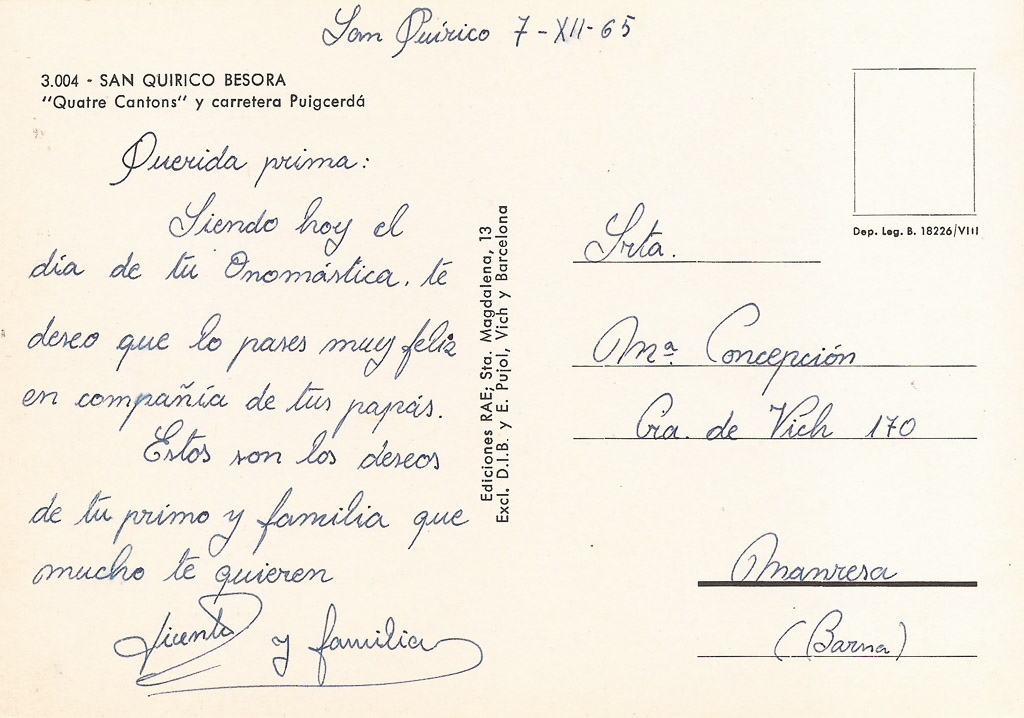 San Quírico 7-XII-65
3.004 - SAN QUIRICO BESORA
"Quatre Cantons" y carretera Puigcerdá
Querida prima:
Siendo hoy el
día de tu Onomástica, te
deseo que lo pases muy feliz
en compañía de tus papás.
Estos son los deseos
de tu primo y familia que
mucho te quieren
Vicente y familia
Ediciones RAE; Sta. Magdalena, 13
Excl. D.I.B. y E. Pujol, Vich y Barcelona
Dep. Leg. B. 18226/VIII
Srta.
Mª Concepción
Cra. de Vich 170
Manresa
(Barna)